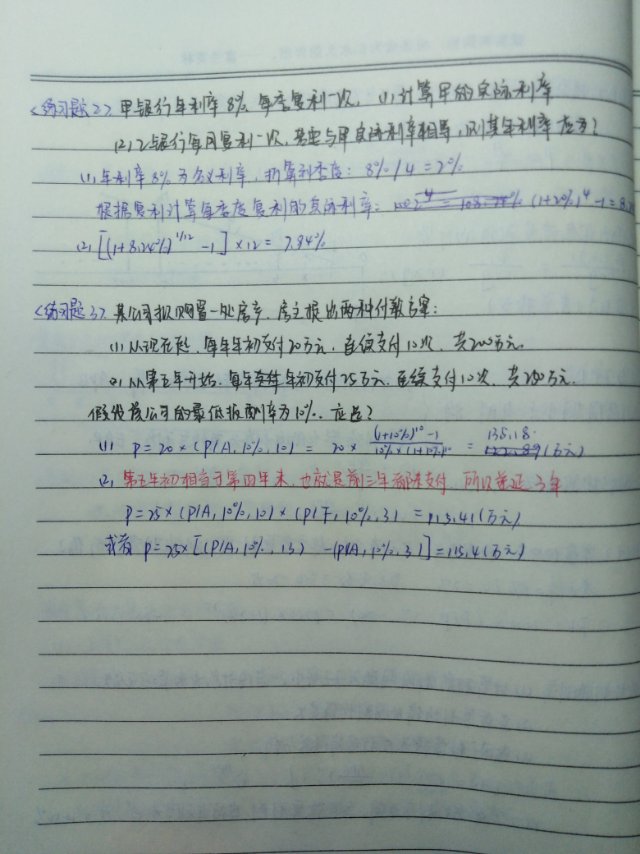 <练习题2>. 甲银行年利率8%, 每季复利一次, (1) 计算甲的实际利率
(2) 乙银行每月复利一次, 若要与甲实际利率相等, 则其年利率应为?
(1) 年利率8%为名义利率, 折算到季度: 8%/4=2%
根据复利计算每季度复利的实际利率: (1+2%)^4-1=8.2
(2) [(1+8.24%)^1/12-1]×12=7.94%
<练习题3>. 某公司拟购置一处房产, 房主提出两种付款方案:
(1) 从现在起, 每年年初支付20万元, 连续支付10次, 共200万元.
(2) 从第五年开始, 每年年初支付25万元, 连续支付10次, 共250万元.
假设该公司的最低报酬率为10%. 应选?
(1) P=20×(P/A, 10%, 10)=20×(1+10%)^10-1/10%×(1+10%)^10=135.18(万元)
(2) 第五年初相当于第四年末, 也就是前三年都未支付, 所以递延3年
P=25×(P/A, 10%, 10)×(P/F, 10%, 3)=113.41(万元)
或者 P=25×[(P/A, 10%, 13)-(P/A, 10%, 3)]=115.41(万元)